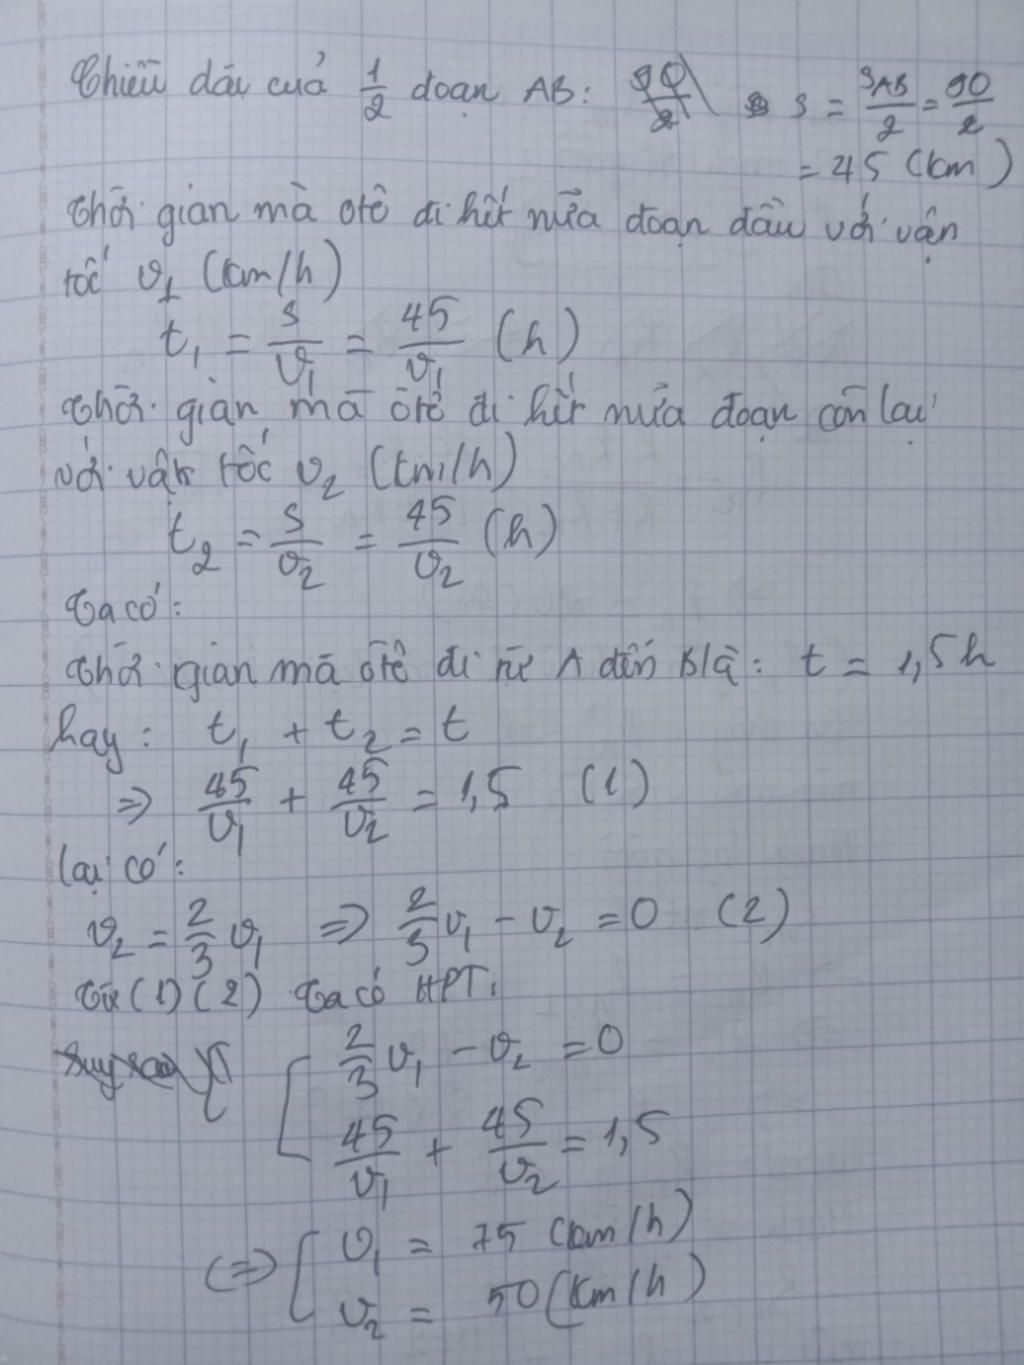 Chiều dài của 1/2 đoạn AB: s = sAB/2 = 90/2
= 45 (km)
Thời gian mà ôtô đi hết nửa đoạn đầu với vận
tốc v1 (km/h)
t1 = s/v1 = 45/v1 (h)
Thời gian mà ôtô đi hết nửa đoạn còn lại
với vận tốc v2 (km/h)
t2 = s/v2 = 45/v2 (h)
Ta có:
Thời gian mà ôtô đi từ A đến B là: t = 1,5h
hay: t1 + t2 = t
=> 45/v1 + 45/v2 = 1,5 (1)
lại có:
v2 = 2/3 v1 => 2/3 v1 - v2 = 0 (2)
Từ (1) (2) Ta có HPT:
2/3 v1 - v2 = 0
45/v1 + 45/v2 = 1,5
<=> v1 = 75 (km/h)
v2 = 50 (km/h)